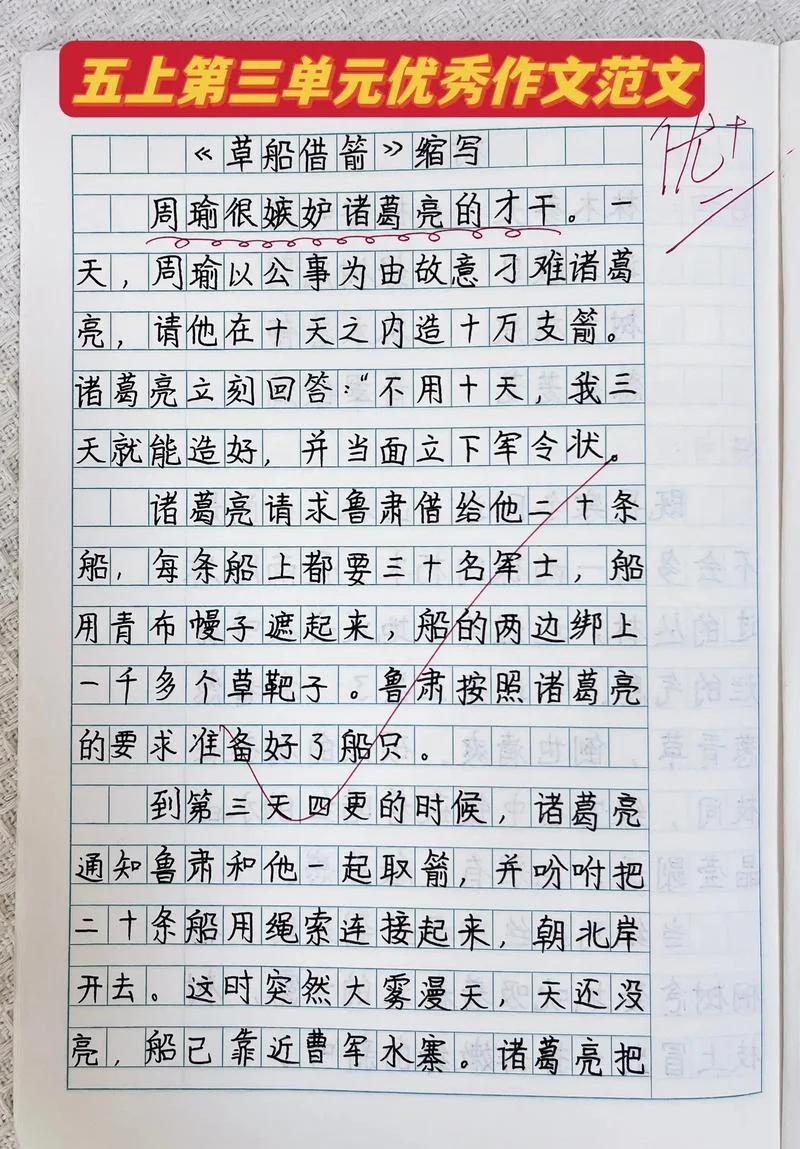 五上第三单元优秀作文范文
优+
《草船借箭》缩写
周瑜很嫉妒诸葛亮的才干。一
天，周瑜以公事为由故意刁难诸葛
亮，请他在十天之内造十万支箭。
诸葛亮立刻回答："不用十天，我三
天就能造好，并当面立下军令状。
诸葛亮请求鲁肃借给他二十条
船，每条船上都要三十名军士，船
用青布幔子遮起来，船的两边绑上
一千多个草靶子。鲁肃按照诸葛亮
的要求准备好了船只。
到第三天四更的时候，诸葛亮
通知鲁肃和他一起取箭，并吩咐把
二十条船用绳索连接起来，朝北岸
开去。这时突然大雾漫天，天还没
亮，船已靠近曹军水寨。诸葛亮把